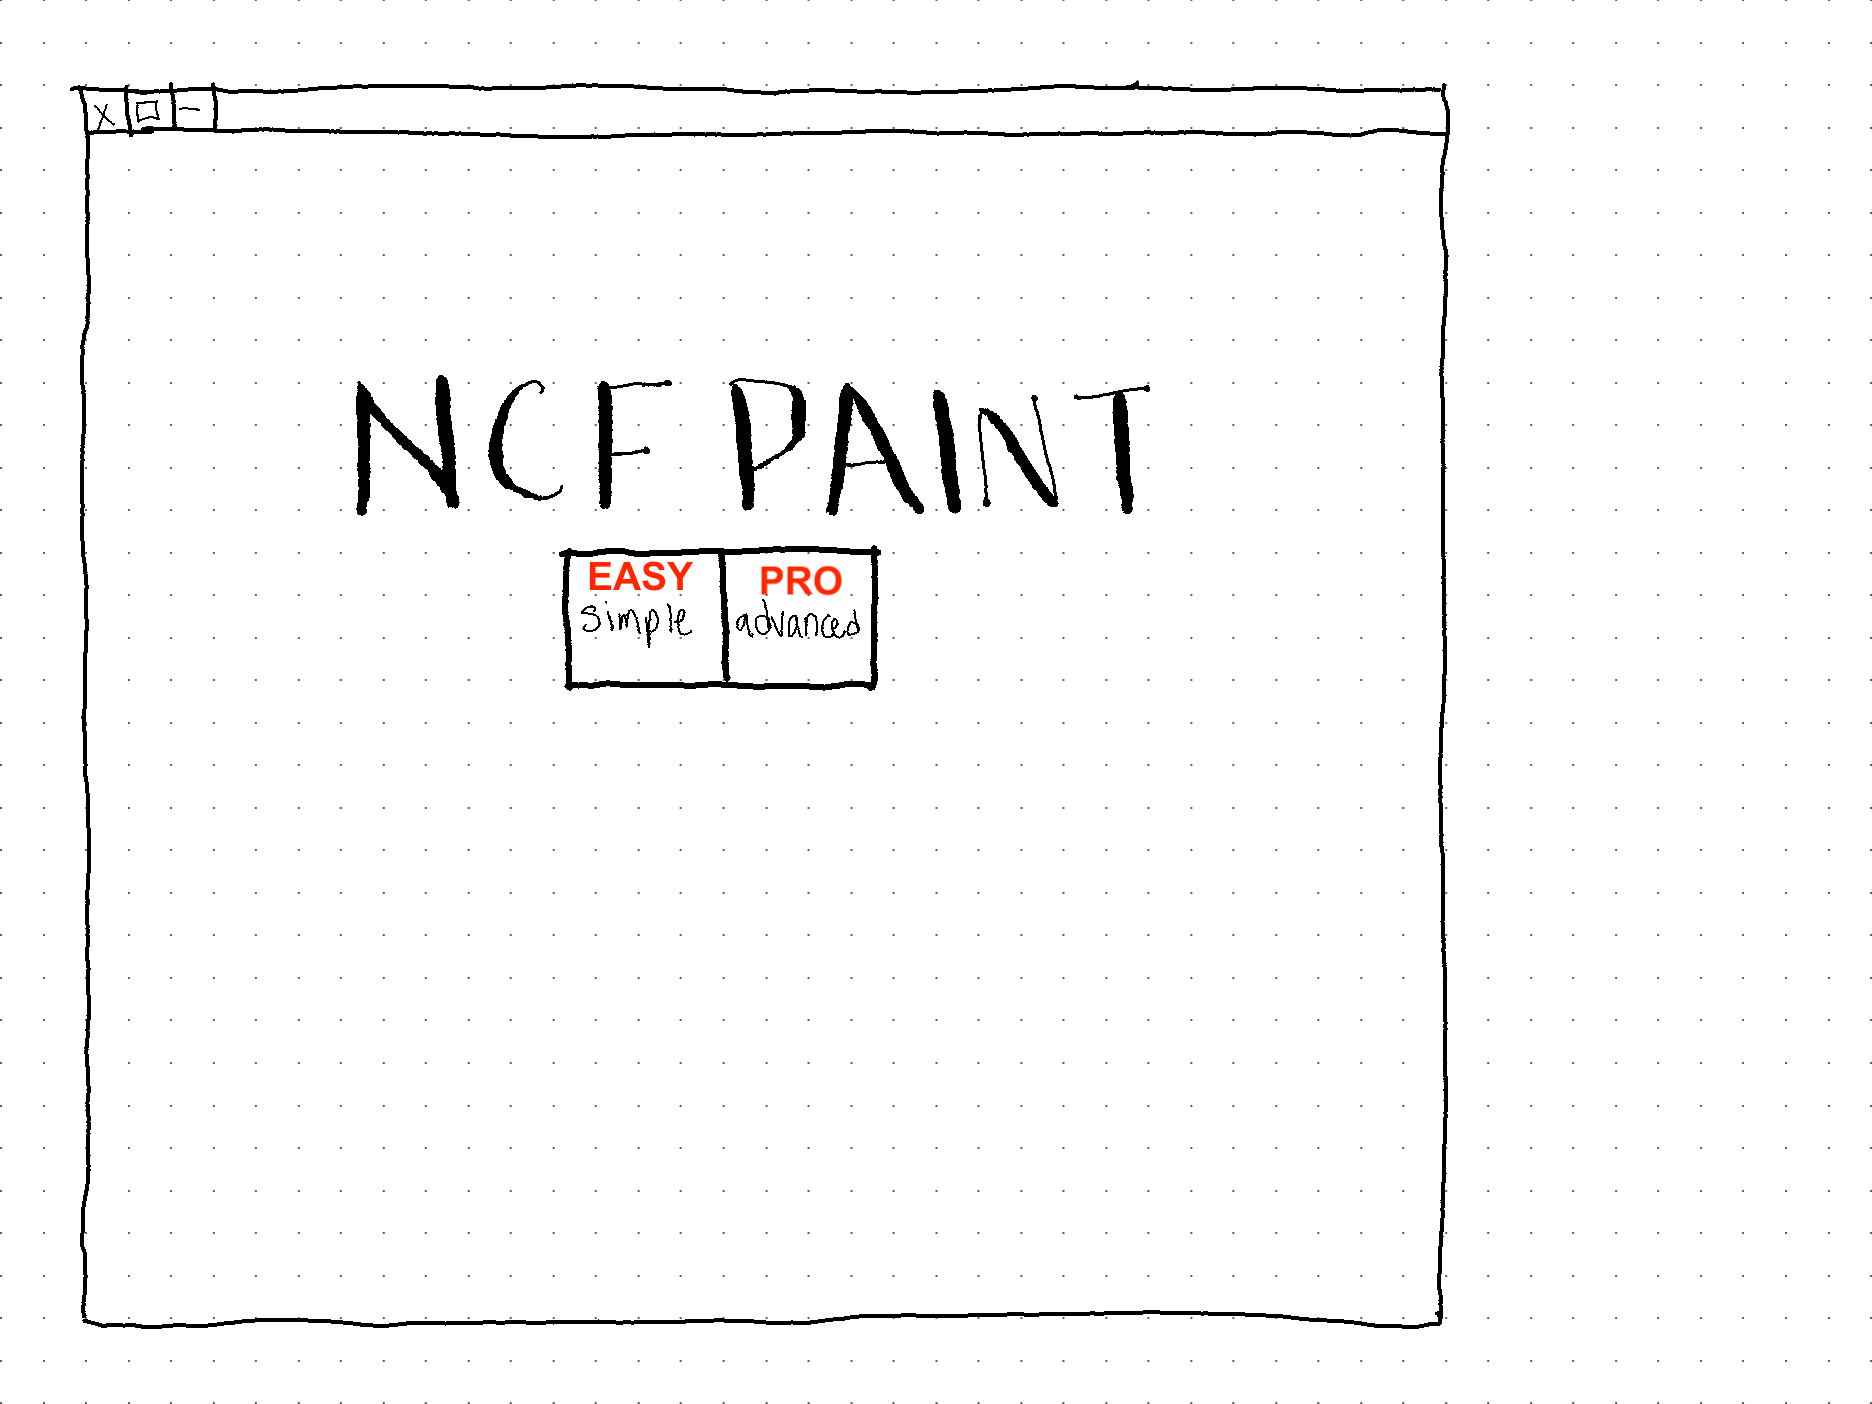 X
NCF PAINT
EASY PRO
simple advanced